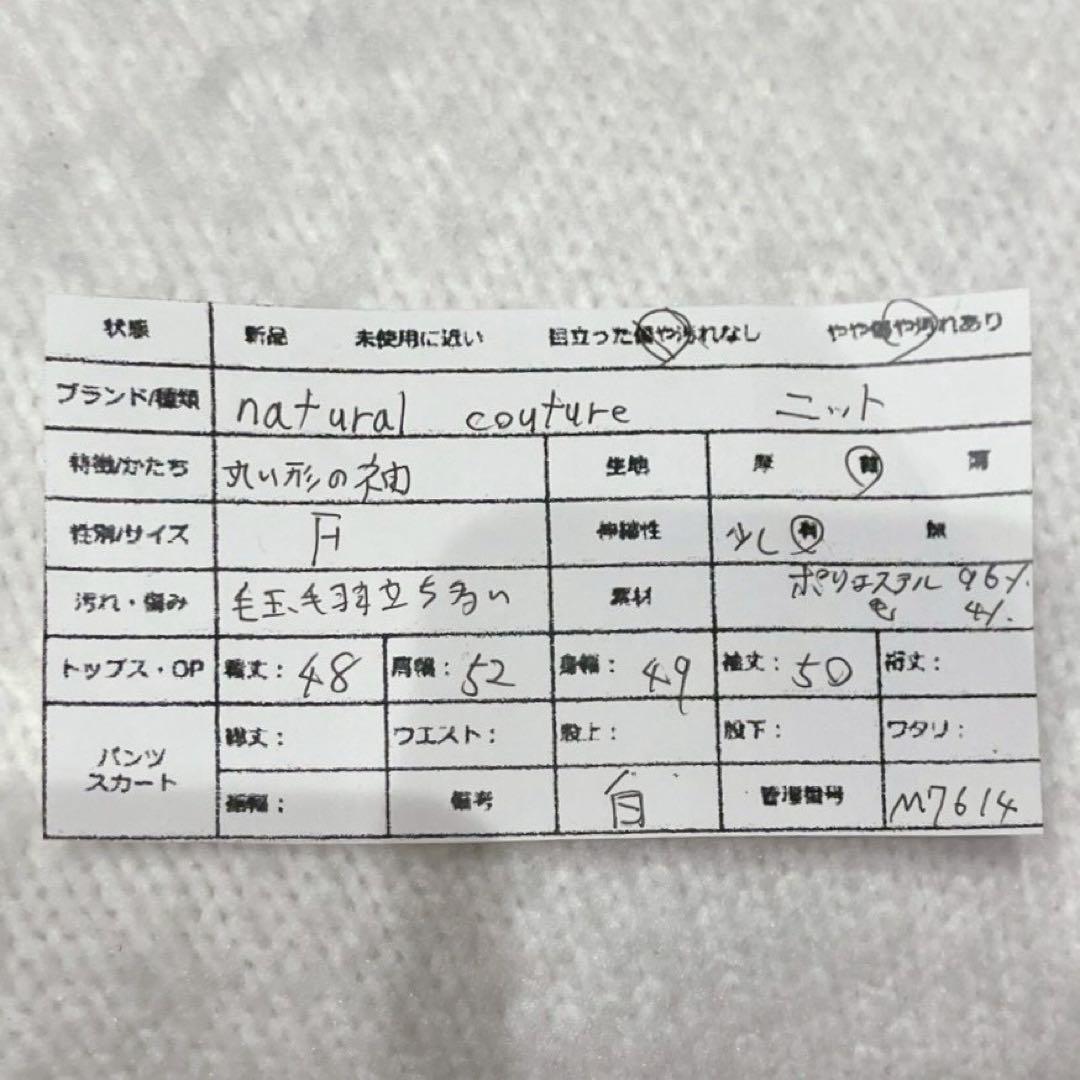 状態 新品 未使用に近い 目立った傷や汚れなし やや傷や汚れあり
ブランド/種類 natural couture ニット
特徴/かたち 丸い形の袖 生地 厚 普 薄
性別/サイズ F 伸縮性 少し 有 無
汚れ・傷み 毛玉、毛羽立ち多い 素材 ポリエステル 96%.
毛 4%.
トップス・OP 着丈: 48 肩幅: 52 身幅: 49 袖丈: 50 裄丈:
パンツ スカート 総丈: ウエスト: 股上: 股下: ワタリ:
裾幅: 備考 白 管理番号 M7614